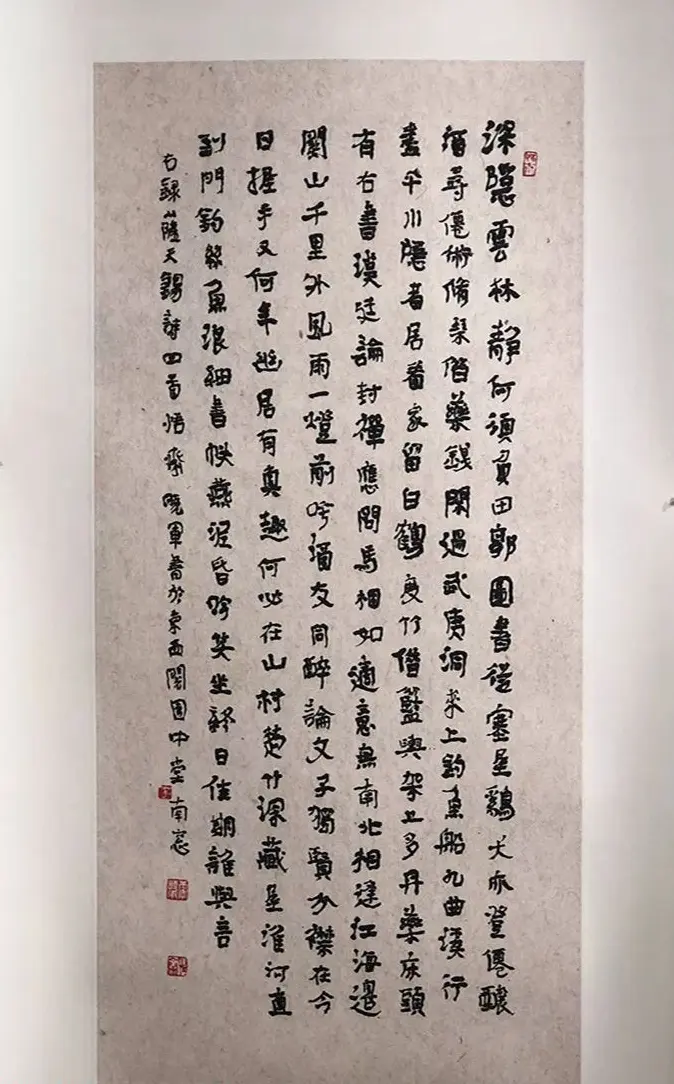 深隱雲林靜何須負田郭圖書從塞屋鷄犬亦登僊釀
酒尋僊術脩琴借藥錢閑過武夷洞來上釣魚船九曲溪行
盡平川隱者居着家留白鶴度竹借籃輿架上多丹藥床頭
有右書漢廷論封禪應問馬相如適意無南北相逢江海邊
關山千里外風雨一燈前呼酒友同醉論文子獨賢分襟在今
日握手又何年幽居有真趣何必在山村楚竹深藏屋淮河直
到門釣絲魚浪細書帙燕泥昏吟笑坐終日佳期誰與言
右錄薩天錫詩四首悟齋曉軍書於東西閣園中堂南窗